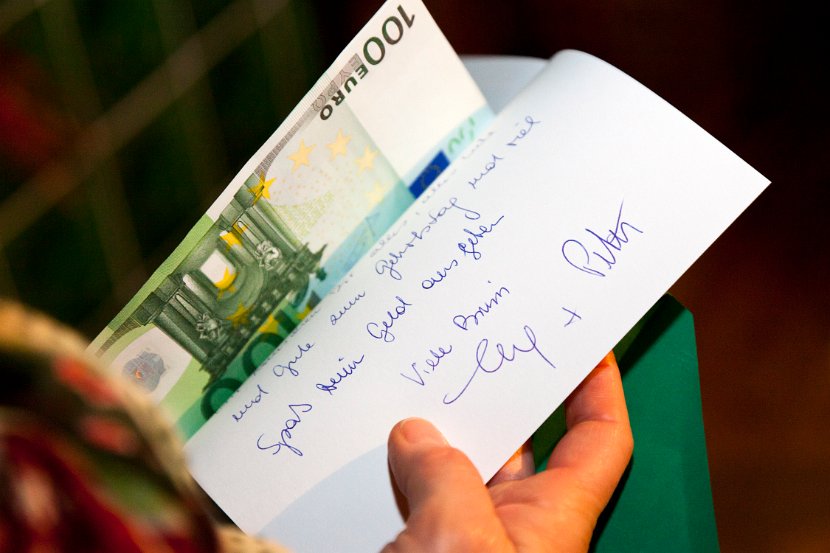 100 EURO
ΕΥΡΩ
100
und Gute zum Geburtstag und viel
Spaß beim Geld ausgeben
Viele
+ Peter